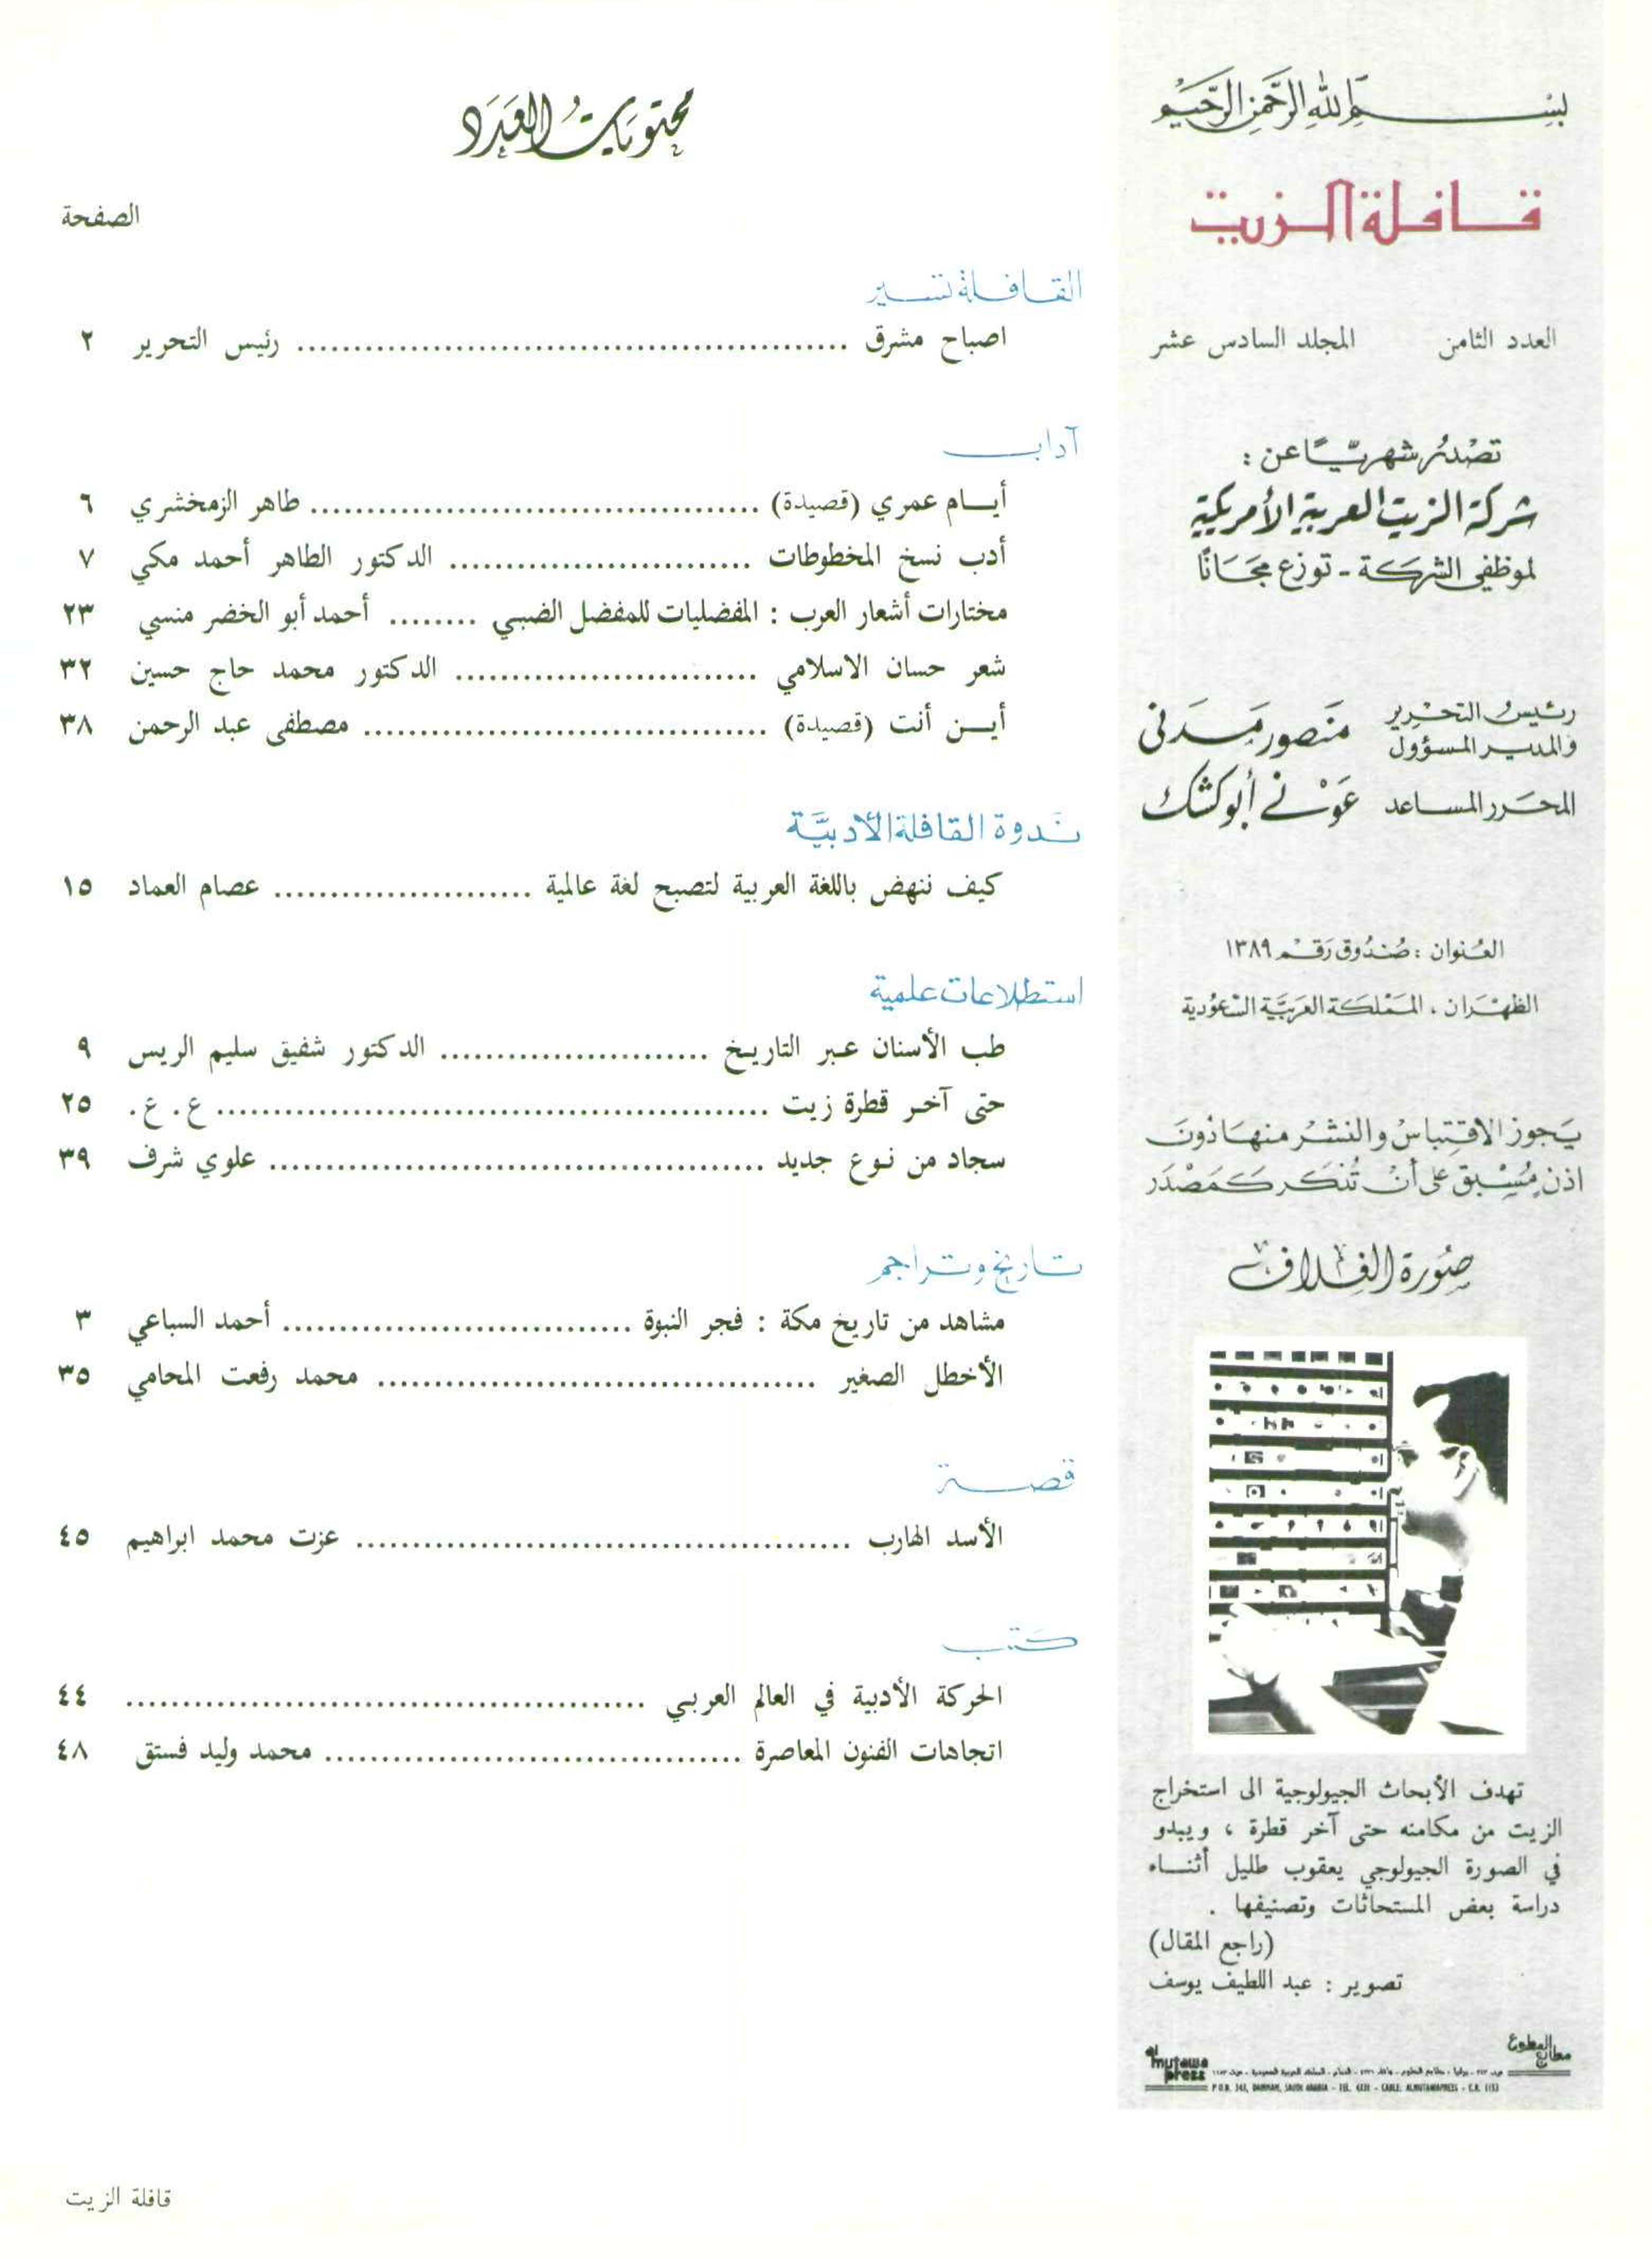 بسم الله الرحمن الرحيم
قافلة الزيت
العدد الثامن المجلد السادس عشر
تصدر شهريًا عن :
شركة الزيت العربية الأمريكية
لموظفي الشركة - توزع مجانًا
رئيس التحرير
والمدير المسؤول منصور مدني
المحرر المساعد عوني أبو كشك
العنوان : صندوق رقم ١٣٨٩
الظهران ، المملكة العربية السعودية
يجوز الاقتباس والنشر منها دون
اذن مسبق على أن تذكر كمصدر
صورة الغلاف
تهدف الأبحاث الجيولوجية الى استخراج
الزيت من مكامنه حتى آخر قطرة ، ويبدو
في الصورة الجيولوجي يعقوب طليل أثنـاء
دراسة بعض المستحاثات وتصنيفها .
(راجع المقال)
تصوير : عبد اللطيف يوسف
مطابع المطوع
al mutawa press
P.O.B. 343, DAMMAM, SAUDI ARABIA - TEL. - CABLE: ALMUTAWAPRESS - C.R. 1153
محتويات العدد
الصفحة
القافلة تسير
اصباح مشرق ........ رئيس التحرير ٢
آداب
أيـام عمري (قصيدة) ........ طاهر الزمخشري ٦
أدب نسخ المخطوطات ........ الدكتور الطاهر أحمد مكي ٧
مختارات أشعار العرب : المفضليات للمفضل الضبي ........ أحمد أبو الخضر منسي ٢٣
شعر حسان الاسلامي ........ الدكتور محمد حاج حسين ٣٢
أيـن أنت (قصيدة) ........ مصطفى عبد الرحمن ٣٨
ندوة القافلة الأدبيّة
كيف ننهض باللغة العربية لتصبح لغة عالمية ........ عصام العماد ١٥
استطلاعات علمية
طب الأسنان عبر التاريخ ........ الدكتور شفيق سليم الريس ٩
حتى آخر قطرة زيت ........ ع . ع . ٢٥
سجاد من نوع جديد ........ علوي شرف ٣٩
تاريخ وتراجم
مشاهد من تاريخ مكة : فجر النبوة ........ أحمد السباعي ٣
الأخطل الصغير ........ محمد رفعت المحامي ٣٥
قصة
الأسد الهارب ........ عزت محمد ابراهيم ٤٥
كتب
الحركة الأدبية في العالم العربي ........ ٤٤
اتجاهات الفنون المعاصرة ........ محمد وليد فستق ٤٨
قافلة الزيت